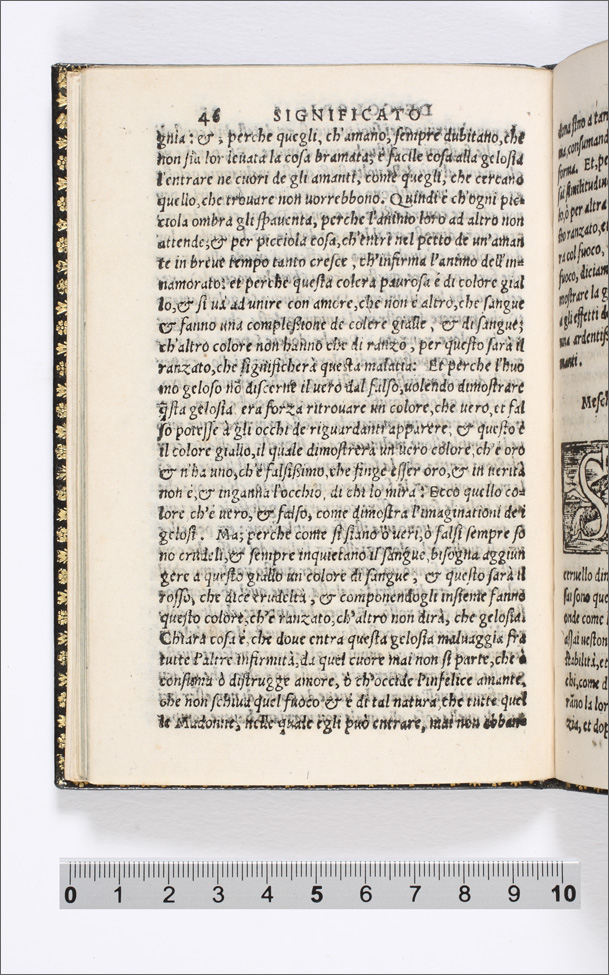 46 SIGNIFICATO
gnia: &, perche quegli, ch'amano, sempre dubitano, che
non sia lor leuata la cosa bramata; è facile cosa alla gelosia
l'entrare ne cuori de gli amanti, come quegli, che cercano
quello, che trouare non uorrebbono. Quindi è ch'ogni pic-
ciola ombra gli spauenta, perche l'animo loro ad altro non
attende; & per picciola cosa, ch'entri nel petto de un'aman
te in breue tempo tanto cresce, ch'infirma l'animo dell'in-
namorato: et perche questa colera paurosa è di colore gial
lo, & si uà ad unire con amore, che non è altro, che sangue
& fanno una compleßione de colere gialle, & di sangue;
ch'altro colore non hanno che di ranzo, per questo sarà il
ranzato, che significherà questa malatia: Et perche l'huo
mo geloso nõ discerne il uero dal falso, uolendo dimostrare
q̃sta gelosia era forza ritrouare un colore, che uero, et fal
so potesse à gli occhi de riguardanti apparere, & questo è
il colore giallo, il quale dimostrerà un uero colore, ch'è oro
& n'ha uno, ch'è falsißimo, che finge esser oro, & in uerità
non è, & inganna l'occhio, di chi lo mira: Ecco quello co-
lore ch'è uero, & falso, come dimostra l'imaginationi de i
gelosi. Ma; perche come si siano ò ueri, ò falsi sempre so
no crudeli, & sempre inquietano il sangue, bisogna aggiun
gere a questo giallo un colore di sangue, & questo sarà il
rosso, che dice crudeltà, & componendogli insieme fanno
questo colore, ch'è ranzato, ch'altro non dirà, che gelosia.
Chiara cosa è, che doue entra questa gelosia maluaggia fra
tutte l'altre infirmità, da quel cuore mai non si parte, che ò
consuma ò distrugge amore, ò ch'occide l'infelice amante,
che non schiua quel fuoco & è di tal natura che tutte quel
le Madonne, nelle quale egli può entrare, mai non
dima sino a tan
forma. Et, pe
sua similitudin
bo, ò per altra
ra col fuoco,
fuoco, diciam
mostrare la g
a gli effetti de
una ardentiß
manti.
Mesch
S
ceruello dim
sai sono que
onde come l
assai ueston
stabilità, et
chi, come d
rãno la lor
zia, et dop